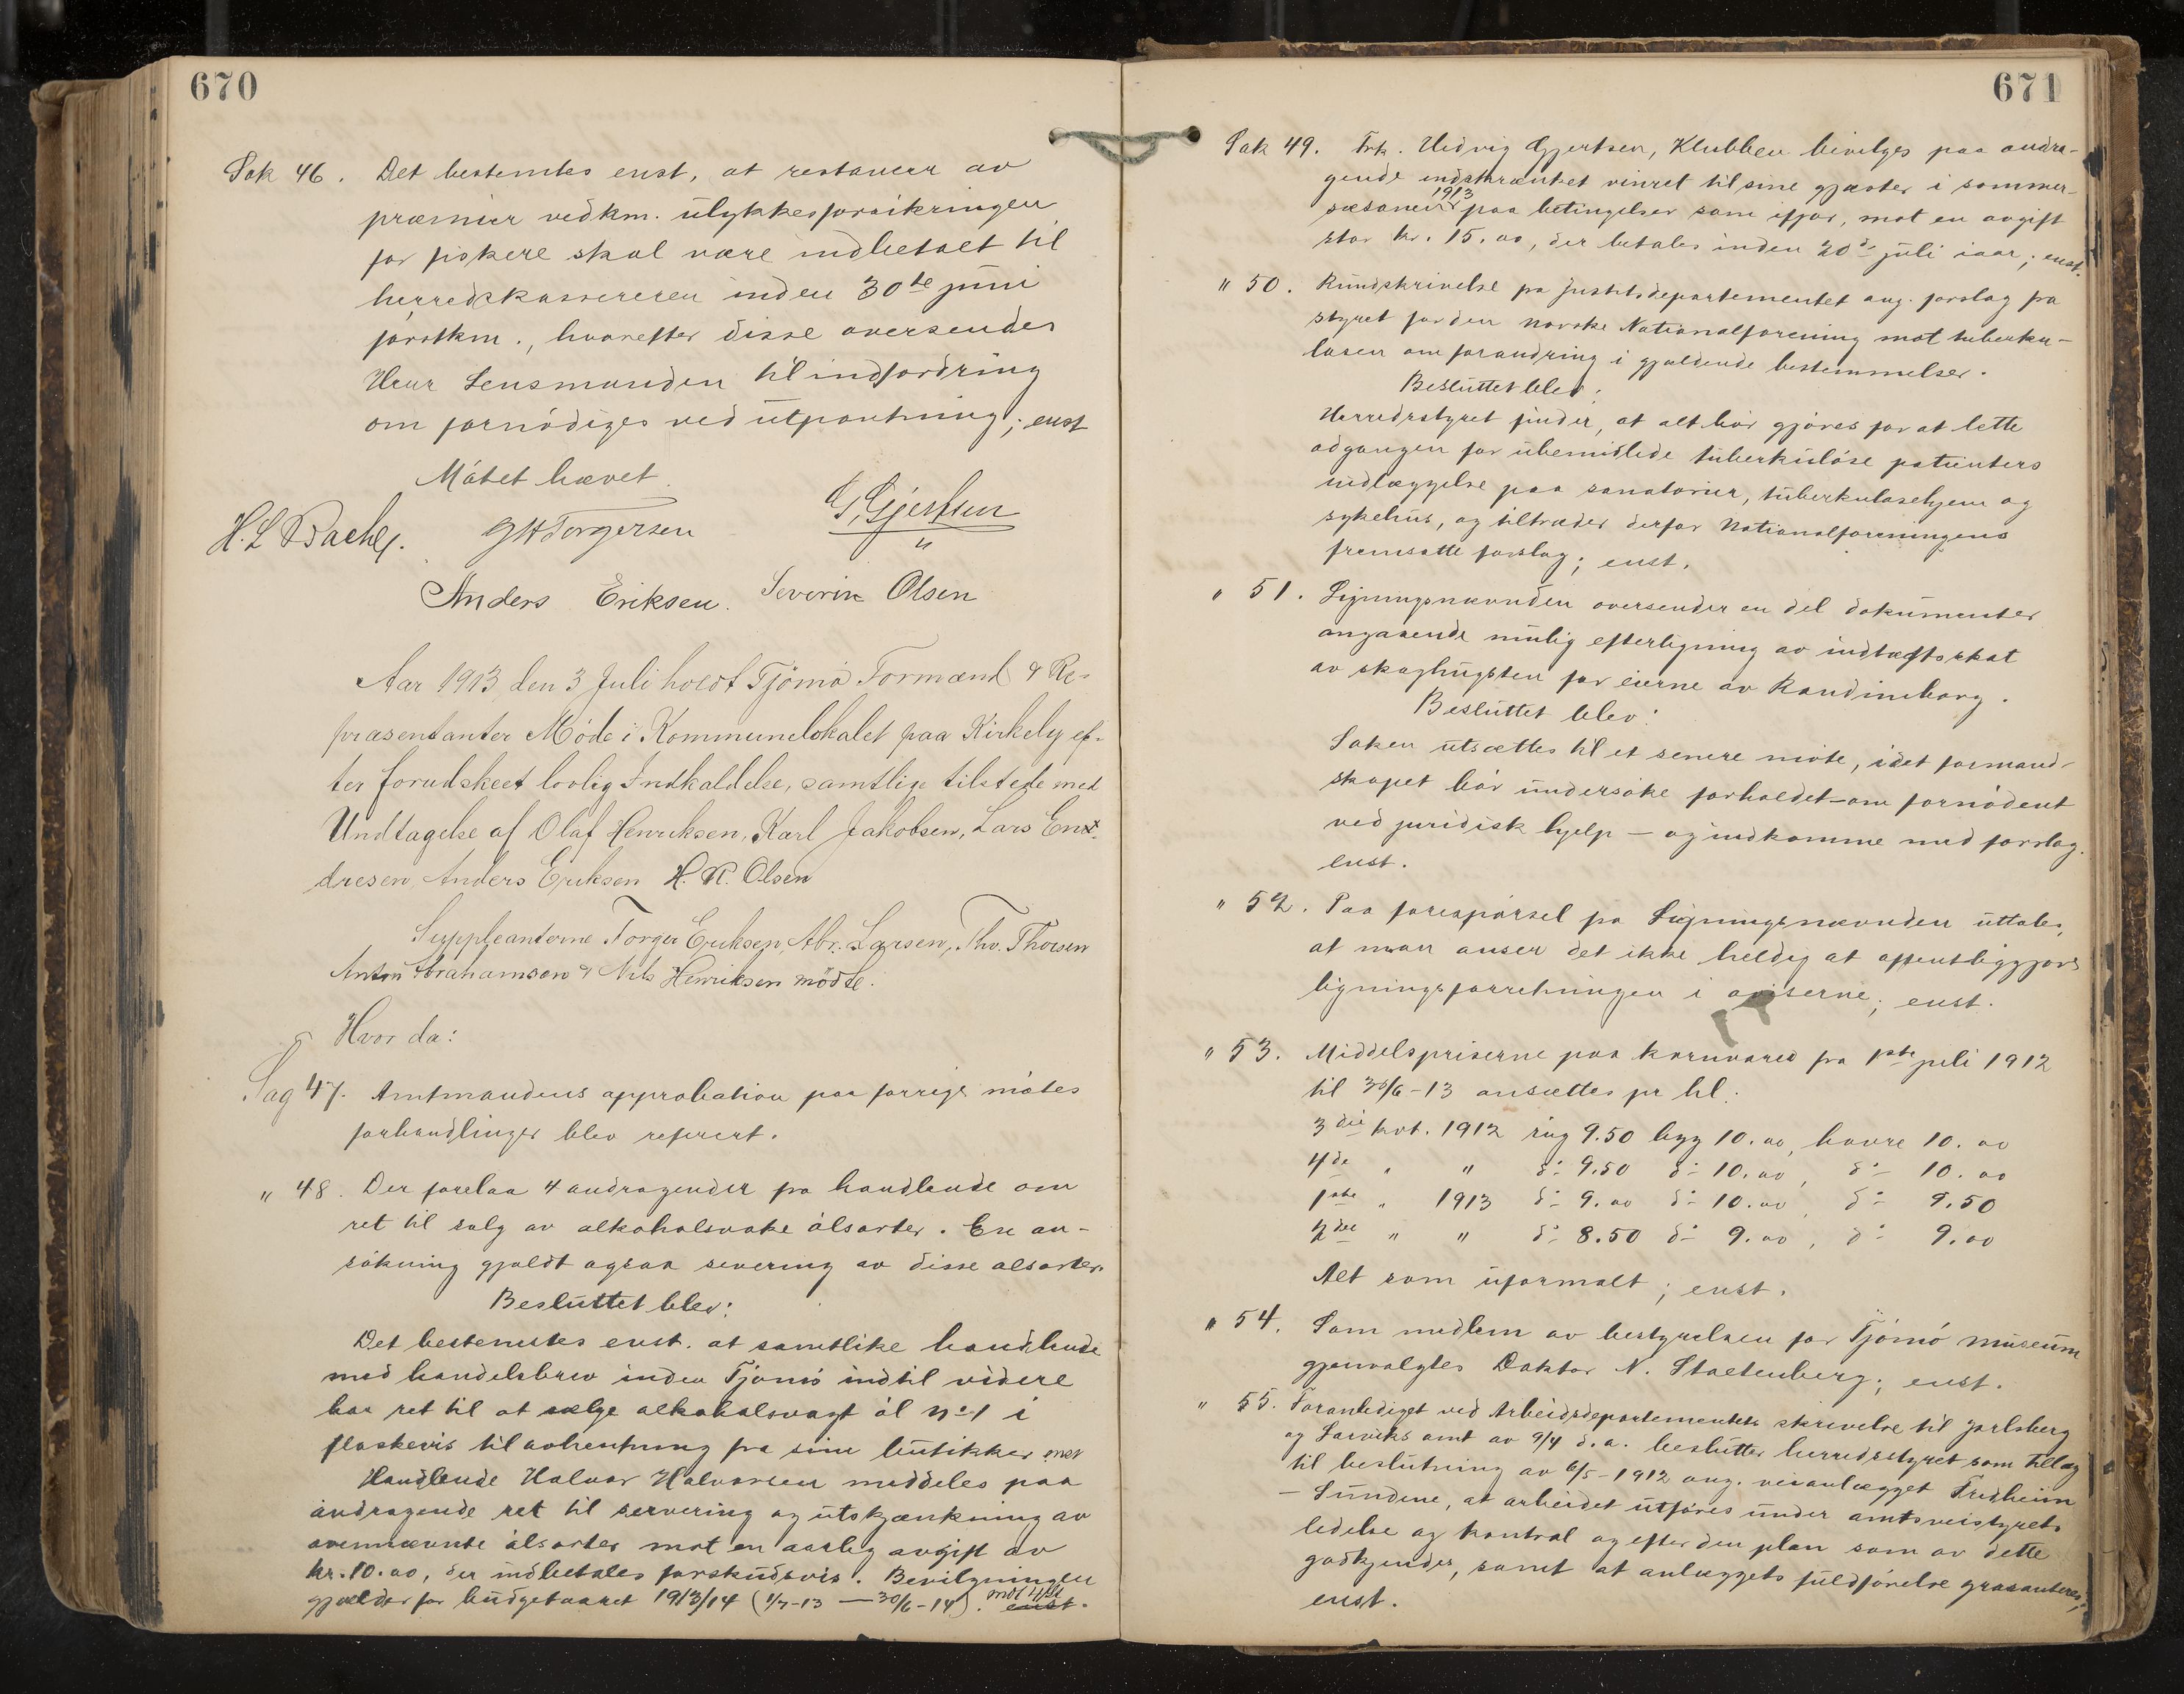 670
Sak 46. Det bestemtes enst, at restancer av
præmier vedkm. ulykkesforsikringen
for fiskere skal være indbetalt til
herredskassereren inden 30te juni
førstkm., hvorefter disse oversendes
Herr Lensmanden til indfordring
om fornødiges ved utpantning; enst
Møtet hævet.
H. L Bache. G H Torgersen G. Gjertsen
Anders Eriksen. Severin Olsen
Aar 1913 den 3 Juli holdt Tjömö Formænd & Re-
præsentanter Möde i Kommunelokalet paa Kirkeby ef-
ter forudskeet lovlig Indkaldelse, samtlige tilstede med
Undtagelse af Olaf Henriksen, Karl Jakobsen, Lars En-
dresen, Anders Eriksen H. N. Olsen
Suppleanterne Torger Eriksen, Abr. Larsen, Thv. Thorsen
Anton Abrahamsen & Nils Henriksen mödte.
Hvor da:
Sag 47. Amtmandens approbation paa forrige møtes
forhandlinger blev referert.
" 48. Der forelaa 4 andragender fra handlende om
ret til salg av alkoholsvake ølsorter. En an-
søkning gjaldt ogsaa severing av disse ølsorter.
Besluttet blev:
Det bestemtes enst. at samtlike handlende
med handelsbrev inden Tjømø indtil videre
har ret til at sælge alkoholsvagt øl No 1 i
flaskevis til avhentning fra sine butikker enst
Handlende Halvor Halvorsen meddeles paa
andragende ret til servering og utskjænkning av
ovennævnte ølsorter mot en aarlig avgift av
kr. 10.00, der indbetales forskudsvis. Bevilgningen
gjælder for budgetaaret 1913/14 (1/7-13 — 30/6-14). enst.
671
Sak 49. Frk. Hedvig Gjertsen, Klubben bevilges paa andra-
gende indskrænket vinret til sine gjæster i sommer-
sæsonen 1913 paa betingelser som ifjor, mot en avgift
stor kr. 15.00, der betales inden 20de juli iaar; enst.
" 50. Rundskrivelse fra Justitsdepartementet ang. forslag fra
styret for den norske Nationalforening mot tuberku-
losen om forandring i gjældende bestemmelser.
Besluttet blev:
Herredsstyret finder, at alt bør gjøres for at lette
adgangen for ubemidlede tuberkuløse patienters
indlæggelse paa sanatorier, tuberkulosehjem og
sykehus, og tiltræder derfor Nationalforeningens
fremsatte forslag; enst.
" 51. Ligningsnævnden oversender en del dokumenter
angaaende mulig efterligning av indtægtsskat
av skoghugsten for eierne av Randineborg.
Besluttet blev:
Saken utsættes til et senere møte, idet formand-
skapet bør undersøke forholdet - om fornødent
ved juridisk hjelp — og indkomme med forslag.
enst.
" 52. Paa forespørsel fra Ligningsnævnden uttales,
at man anser det ikke heldig at offentliggjøre
ligningsforretningen i aviserne; enst.
" 53. Middelspriserne paa kornvarer fra 1ste juli 1912
til 30/6-13 ansættes pr hl:
3die kvt. 1912 rug 9.50 byg 10.00, havre 10.00
4de " " do 9.50 do 10.00, do 10.00
1ste " 1913 do 9.00 do 10.00, do 9.50
2det " " do 8.50 do 9.00, do 9.00
Alt som uformalt; enst.
" 54. Som medlem av bestyrelsen for Tjømø museum
gjenvalgtes Doktor N. Stoltenberg; enst.
" 55. Foranlediget ved Arbeidsdepartementets skrivelse til Jarlsberg
og Larviks amt av 9/4 d.a. beslutter herredsstyret som tillæg
til beslutning av 6/5-1912 ang. veianlægget Fredheim
— Sundene, at arbeidet utføres under amtsveistyrets
ledelse og kontrol og efter den plan som av dette
godkjendes, samt at anlæggets fuldførelse garanteres;
enst.